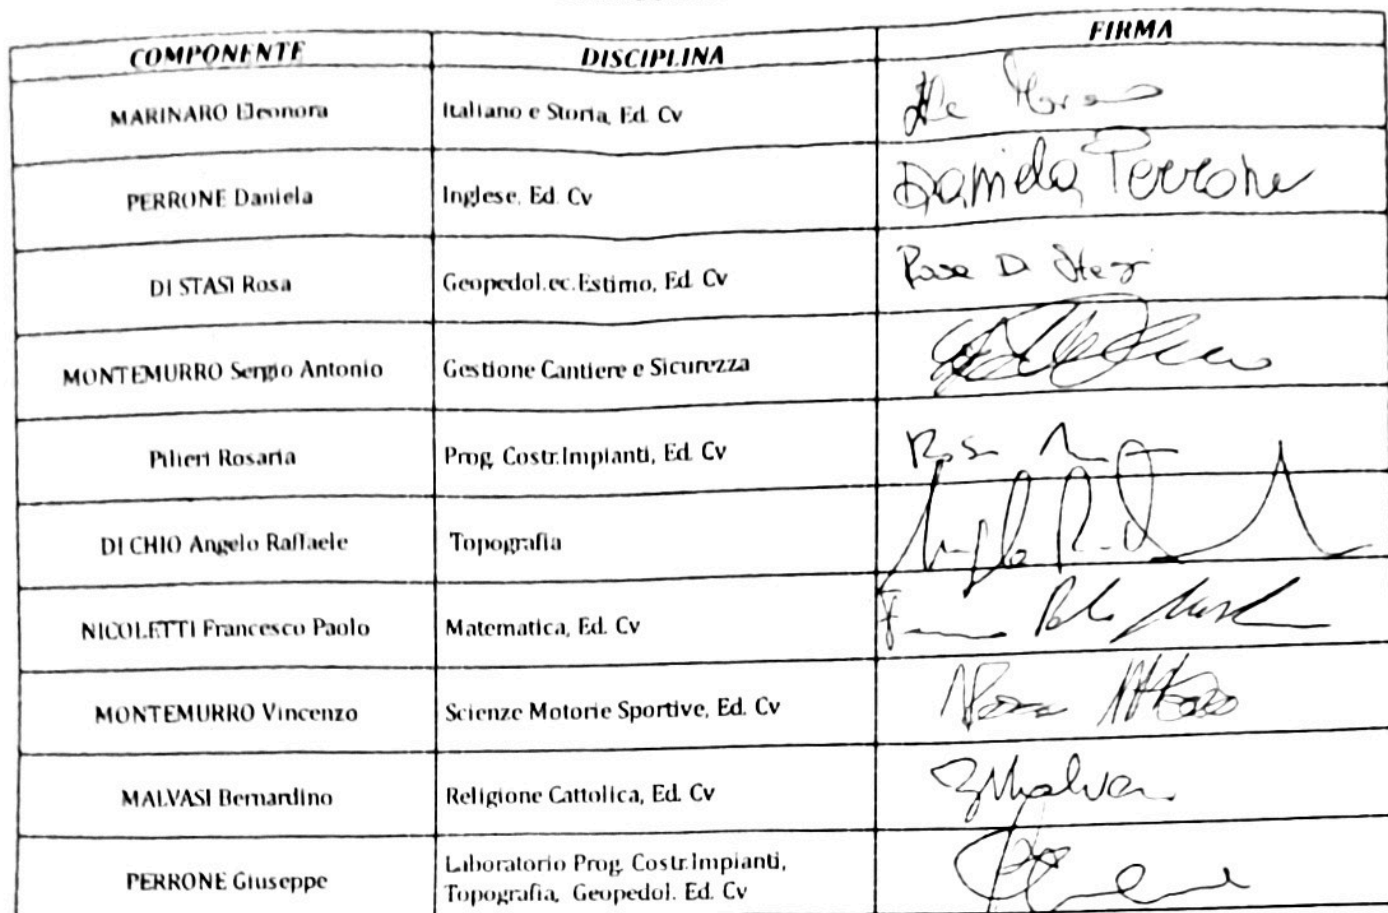 COMPONENTE DISCIPLINA FIRMA
MARINARO Eleonora Italiano e Storia, Ed. Cv
PERRONE Daniela Inglese, Ed. Cv Daniela Perrone
DI STASI Rosa Geopedol.ec.Estimo, Ed. Cv Rosa Di Stasi
MONTEMURRO Sergio Antonio Gestione Cantiere e Sicurezza
Pilieri Rosaria Prog. Costr.Impianti, Ed. Cv
DI CHIO Angelo Raffaele Topografia
NICOLETTI Francesco Paolo Matematica, Ed. Cv
MONTEMURRO Vincenzo Scienze Motorie Sportive, Ed. Cv
MALVASI Bernardino Religione Cattolica, Ed. Cv
PERRONE Giuseppe Laboratorio Prog. Costr.Impianti,
Topografia, Geopedol. Ed. Cv